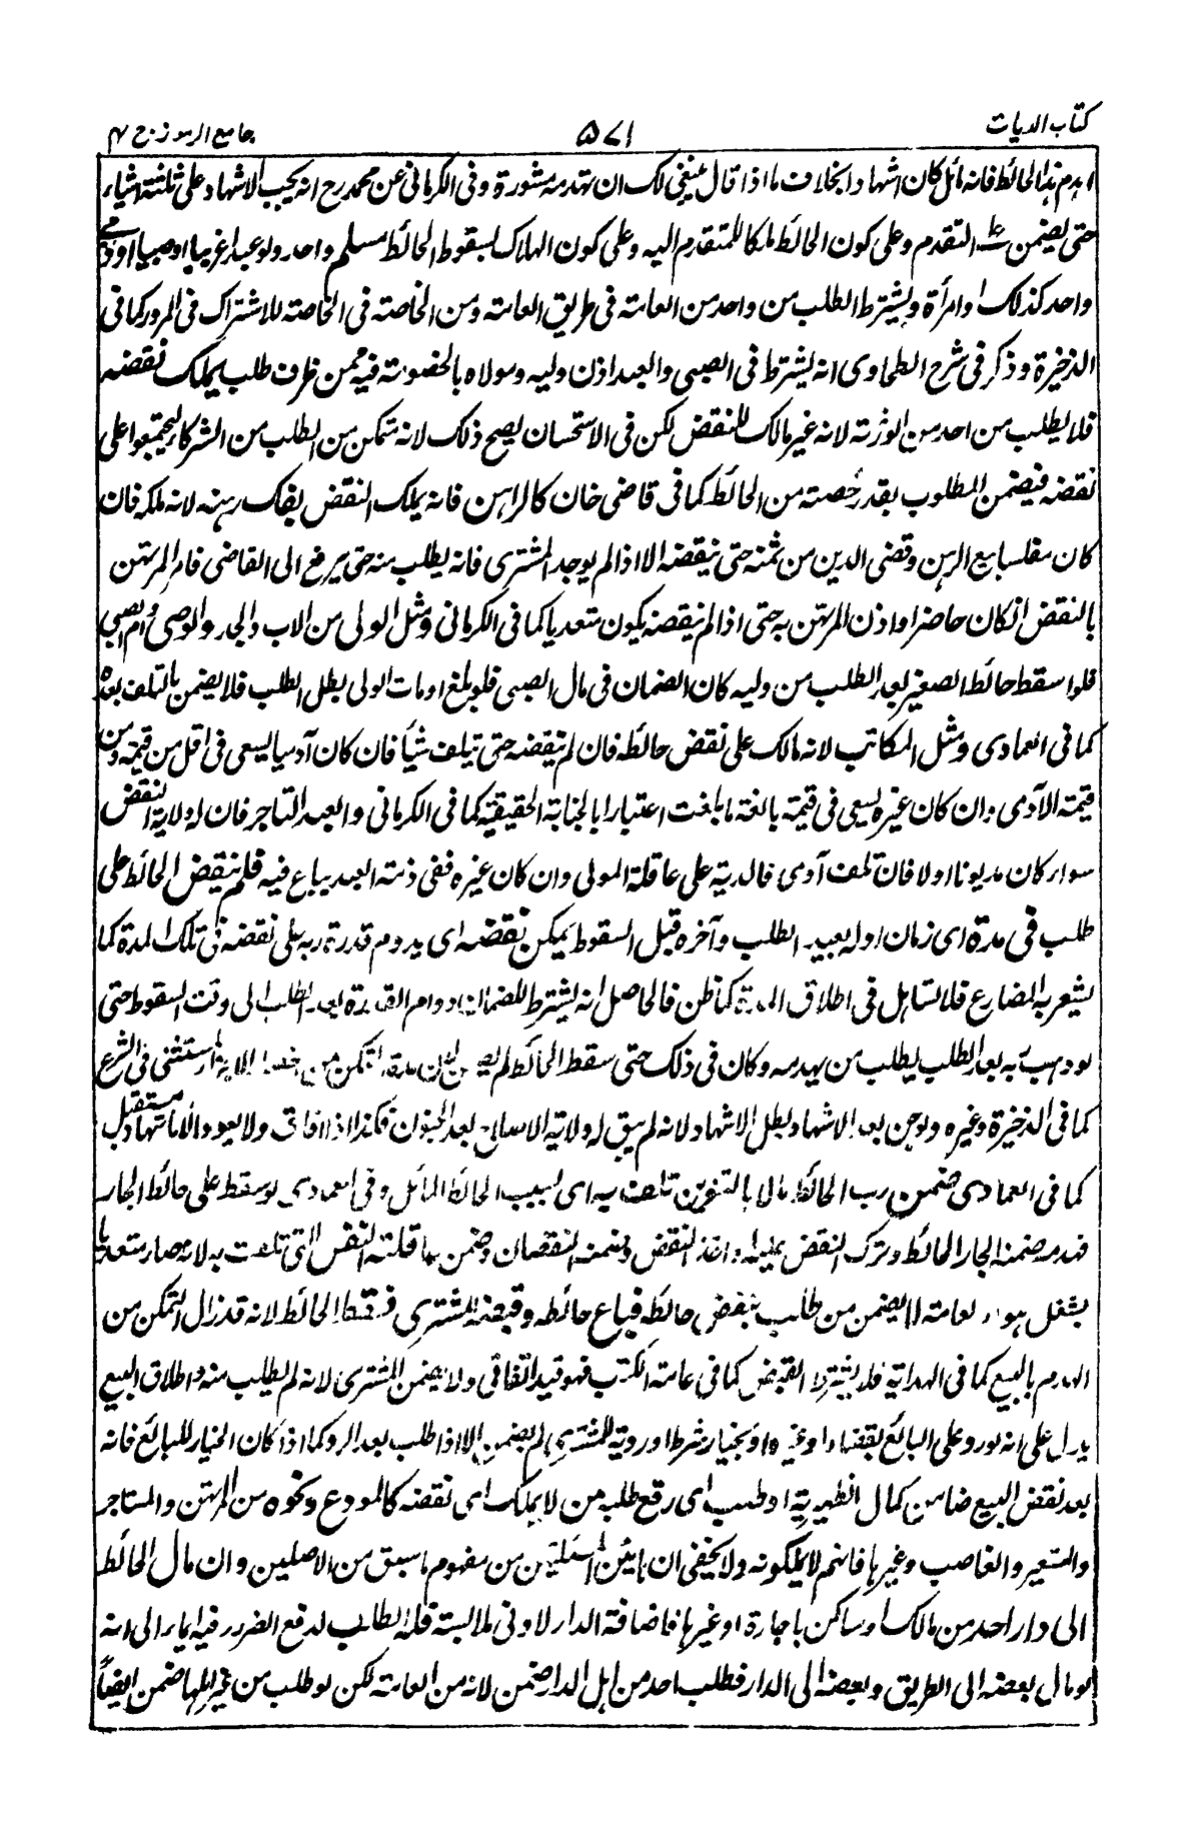 كتاب الديات
٥٧١
جامع الرموز ج ٤
اهدم هذا الحائط فانه مائل كان اشهادا بخلاف ما اذا قال ينبغي لك ان تهدمه مشورة وفى الكرمانى عن محمد رح انه يجب الاشهاد على ثلثة اشياء
حتى يضمن على التقدم وعلى كون الحائط ملكا للمتقدم اليه وعلى كون الهلاك لسقوط الحائط مسلم واحد ولو عبدا غريبا او صبيا او ذمي
واحد كذلك او امرأة ويشترط الطلب من واحد من العامة فى طريق العامة ومن الخاصة فى الخاصة للاشتراك فى المرور كما فى
الذخيرة وذكر فى شرح الطحاوى انه يشترط فى الصبى والعبد اذن وليه ومولاه بالخصومة فيه ممن ظرف طلب يملك نقضه
فلا يطلب من احد من الورثة لانه غير مالك للنقض لكن فى الاستحسان يصح ذلك لانه متمكن من الطلب من الشركاء ليجتمعوا على
نقضه فيضمن المطلوب بقدر حصته من الحائط كما فى قاضى خان كالراهن فانه يملك النقض بفك رهنه لانه ملكه فان
كان مفلسا بيع الرهن وقضى الدين من ثمنه حتى ينقضه الا اذا لم يوجد المشترى فانه يطلب منه حتى يرفع الى القاضى فامر المرتهن
بالنقض ان كان حاضرا او اذن المرتهن به حتى اذا لم ينقضه يكون متعديا كما فى الكرمانى ومثل الولى من الاب والجد والوصى وام الصبي
فلو سقط حائط الصغير بعد الطلب من وليه كان الضمان فى مال الصبى فلو بلغ او مات الولى بطل الطلب فلا يضمن بالتلف بعده
كما فى العمادى ومثل المكاتب لانه مالك على نقض حائطه فان لم ينقضه حتى يتلف شيأ فان كان آدميا يسعى فى اقل من قيمته ومن
قيمة الآدمى وان كان غيره يسعى فى قيمته بالغة ما بلغت اعتبارا بالجناية الحقيقية كما فى الكرمانى والعبد التاجر فان له ولاية النقض
سواء كان مديونا او لا فان تلف آدمى فالدية على عاقلة المولى وان كان غيره ففى ذمة العبد يباع فيه فلم ينقض الحائط على
طلب فى مدة اى زمان اوله بعيد الطلب وآخره قبل السقوط يمكن نقضه اى يدوم قدرة ربه على نقضه فى تلك المدة كما
يشعر به المضارع فلا تساهل فى اطلاق المدة كما ظن فالحاصل انه يشترط للضمان دوام القدرة بعد الطلب الى وقت السقوط حتى
لو ذهب به بعد الطلب يطلب من يهدمه وكان فى ذلك حتى سقط الحائط لم يضمن لان مدة التمكن من مستثنى فى الشرع
كما فى الذخيرة وغيره ولو جن بعد الاشهاد بطل الاشهاد لانه لم يبق له ولاية الاصلاح بعد الجنون فكذا اذا افاق ولا يعود الا باشهاد مستقبل
كما فى العمادى ضمن رب الحائط مالا بالتنوين تلف به اى بسبب الحائط المائل وفى العمادى لو سقط على حائط الجار
فهدمه ضمنه الجار الحائط وترك النقض عليه واخذ النقض وضمنه النقصان وضمن عاقلته النفس التى تلفت به لانه صار متعديا
بشغل هواء العامة لا يضمن من طلب بنقض حائطه فباع حائطه وقبضه المشترى فسقط الحائط لانه قد زال التمكن من
الهدم بالبيع كما فى الهداية فلا يشترط القبض كما فى عامة الكتب فهو قيد اتفاقى ولا يضمن المشترى لانه لم يطلب منه واطلاق البيع
يدل على انه لو رد على البائع بقضاء او غيره او بخيار شرط او روية للمشترى لم يضمن الا اذا طلب بعد الرد كما اذا كان الخيار للبائع فانه
بعد نقض البيع ضامن كما فى الظهيرية او طلب اى رفع طلبه من لا يملك اى نقضه كالمودع ونحوه من المرتهن والمستاجر
والمستعير والغاصب وغيرها فانهم لا يملكونه ولا يخفى ان هاتين المسئلتين من مفهوم ما سبق من الاصلين وان مال الحائط
الى دار احد من مالك او ساكن باجارة او غيرها فاضافة الدار لادنى ملابسة فله الطلب لدفع الضرر فيه ايماء الى انه
لو مال بعضه الى الطريق وبعضه الى الدار فطلب احد من اهل الدار ضمن لانه من العامة لكن لو طلب من غير اهلها ضمن ايضاً